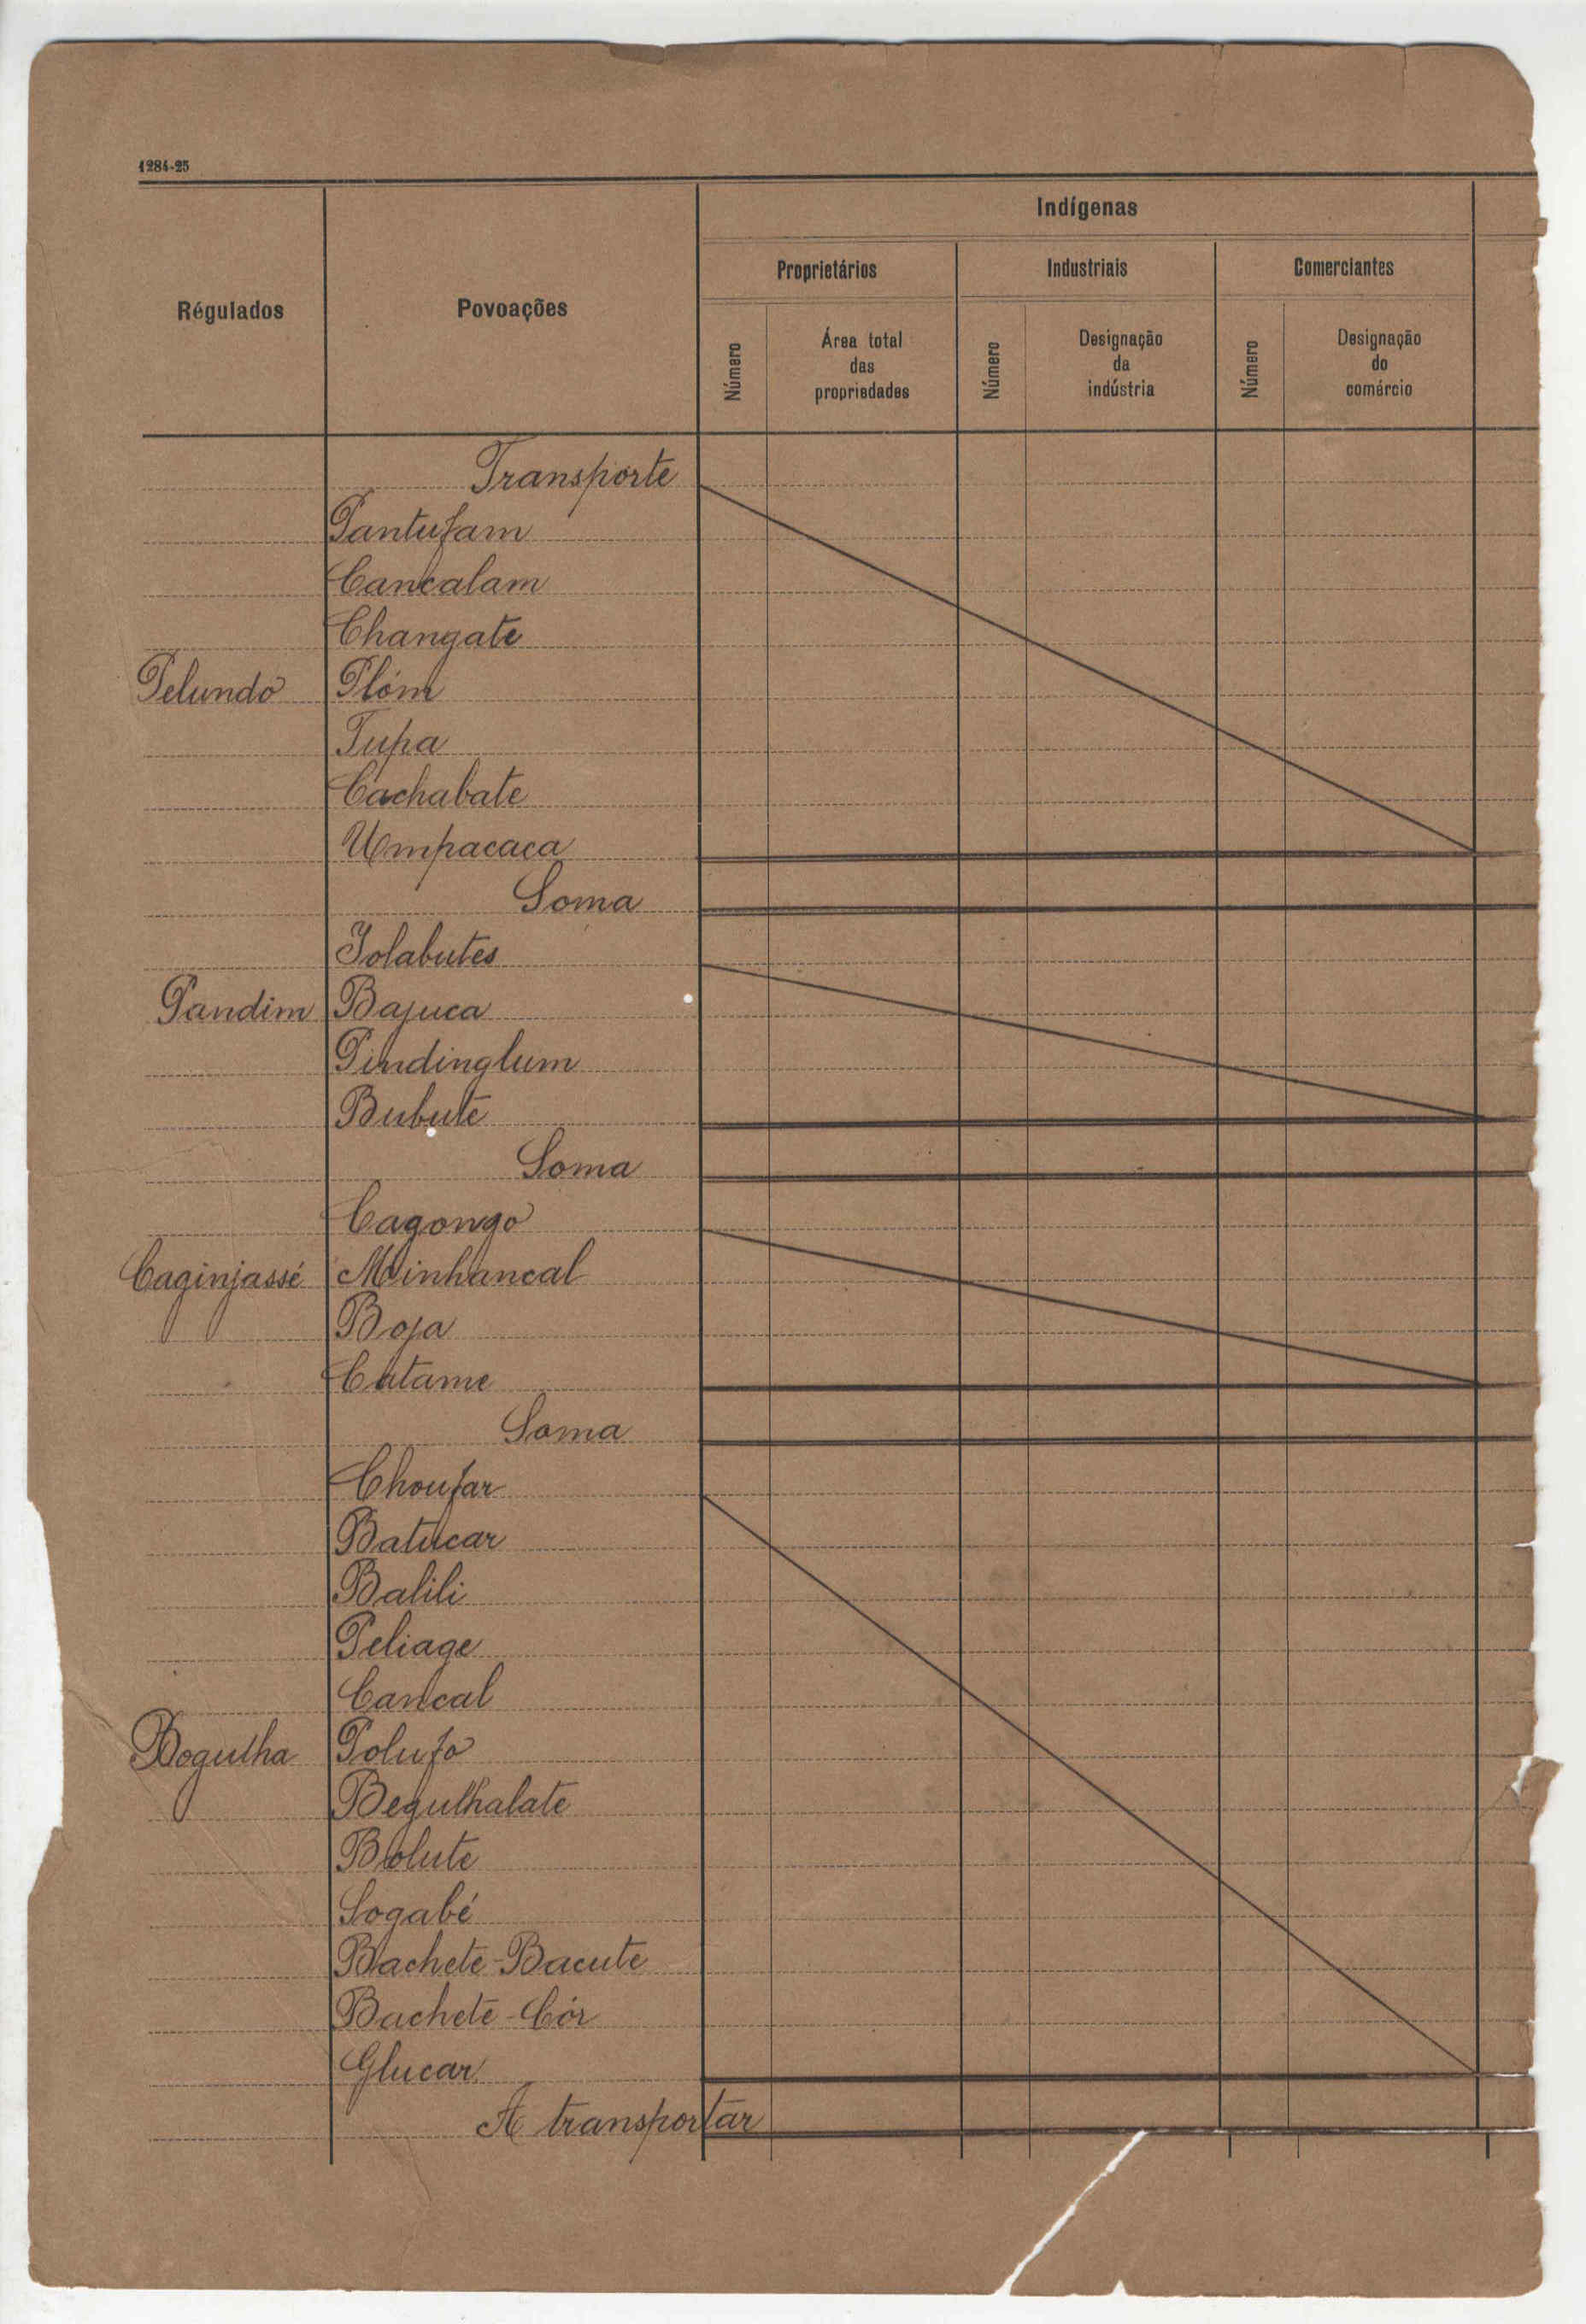 1284-25
Indígenas
Régulados
Povoações
Proprietários
Industriais
Comerciantes
Número
Área total
das
propriedades
Número
Designação
da
indústria
Número
Designação
do
comércio
Transporte
Pantufam
Cancalam
Changate
Pelundo Plóm
Tupa
Cachabate
Umpacaca
Soma
Jolabutes
Pandim Bajuca
Pindinglum
Bubute
Soma
Cagongo
Caginjassé Minhancal
Boja
Catame
Soma
Choufar
Batucar
Balili
Peliage
Cancal
Bogulha Polufo
Begulhalate
Bolute
Sogabé
Bachete-Bacute
Bachete-Cór
Glucar
A transportar